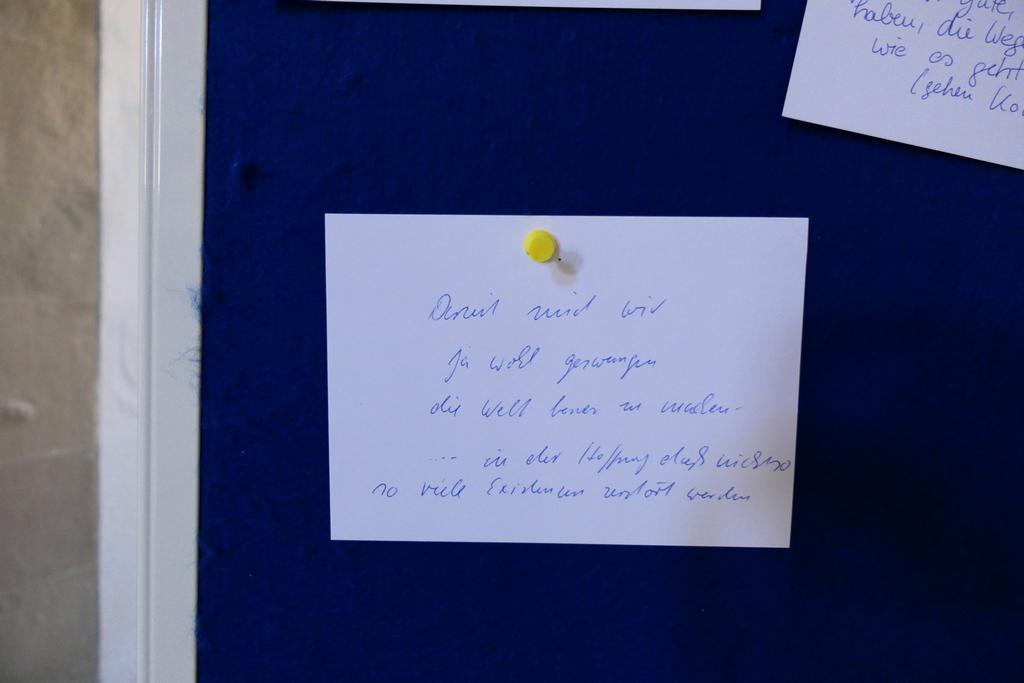 gute,
haben, die Wege
wie es geht
(gehen
Derzeit sind wir
ja wohl gezwungen
die Welt besser zu machen-
--- in der Hoffnung daß nicht so
so viele Existenzen zerstört werden